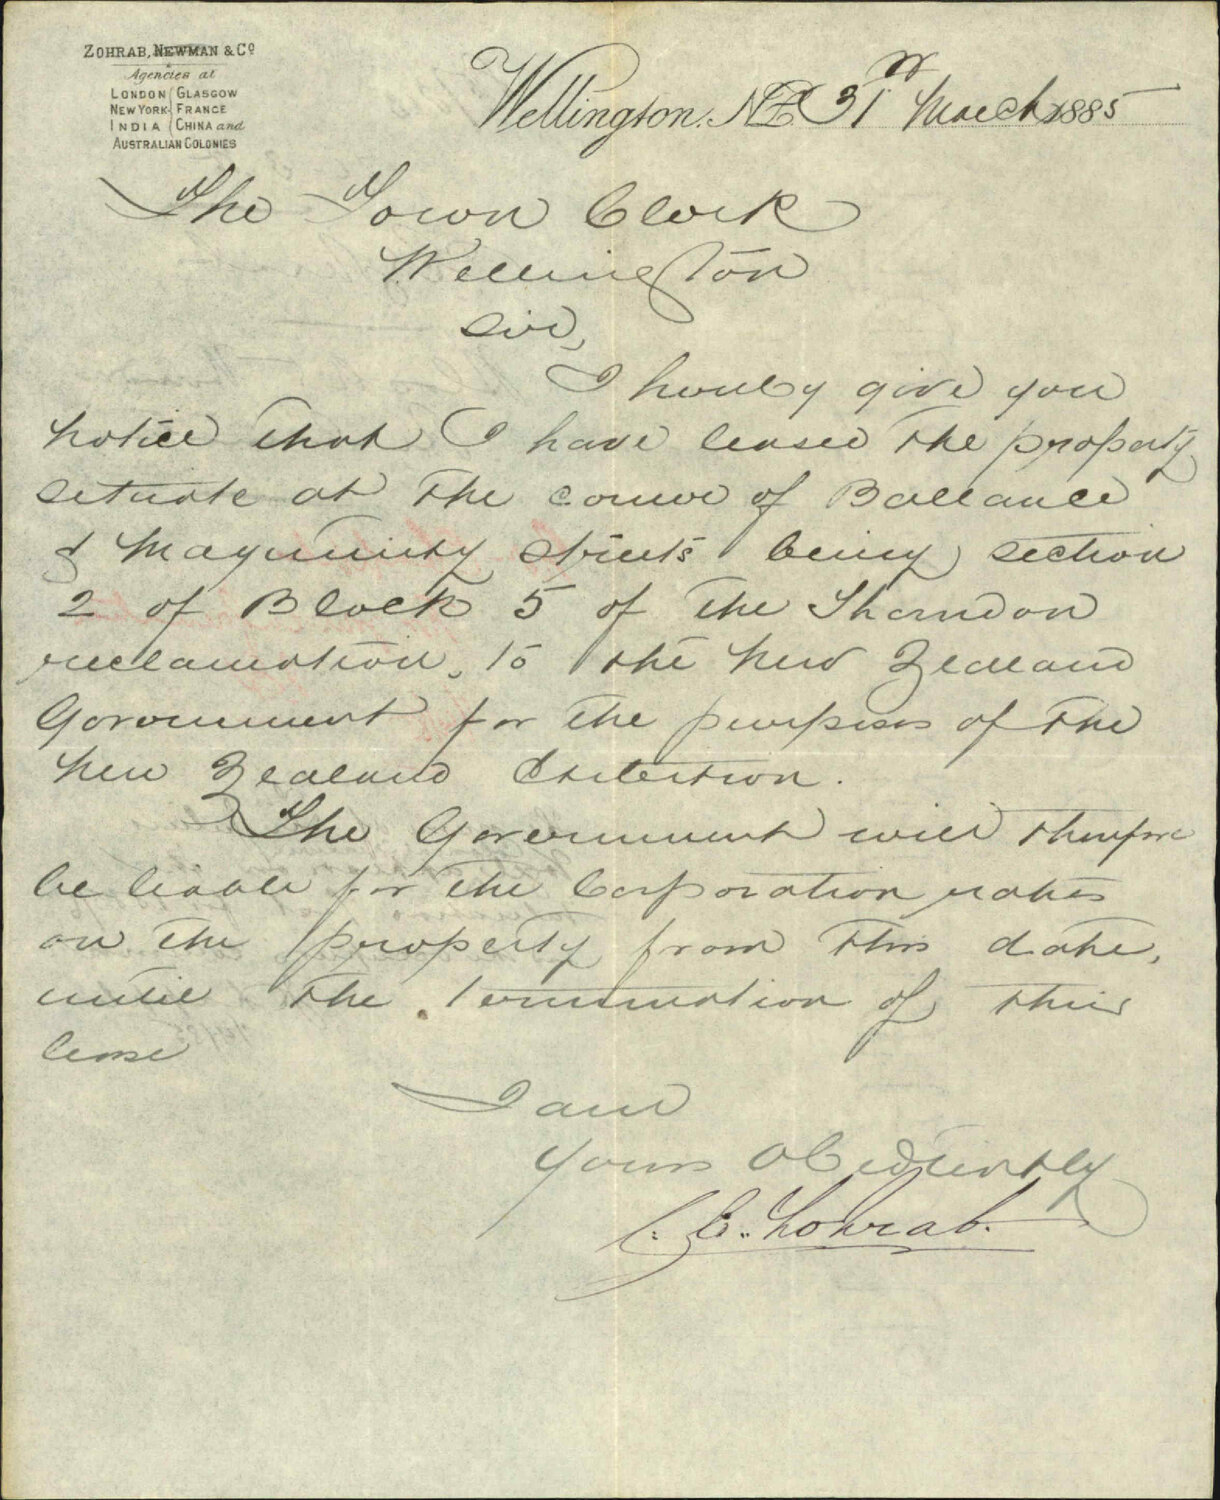 ZOHRAB, NEWMAN & Co
Agencies at
LONDON GLASGOW
NEW YORK FRANCE
INDIA CHINA and
AUSTRALIAN COLONIES
Wellington, N.Z. 31st March 1885
The Town Clerk
Wellington
Sir,
I hereby give you
notice that I have leased the property
situate at the corner of Ballance
& Maginnity Streets being section
2 of Block 5 of the Thorndon
reclamation, to the New Zealand
Government for the purposes of the
New Zealand Exhibition.
The Government will therefore
be liable for the Corporation rates
on the property from this date,
until the termination of their
lease
I am
Yours Obediently
C. E. Zohrab.